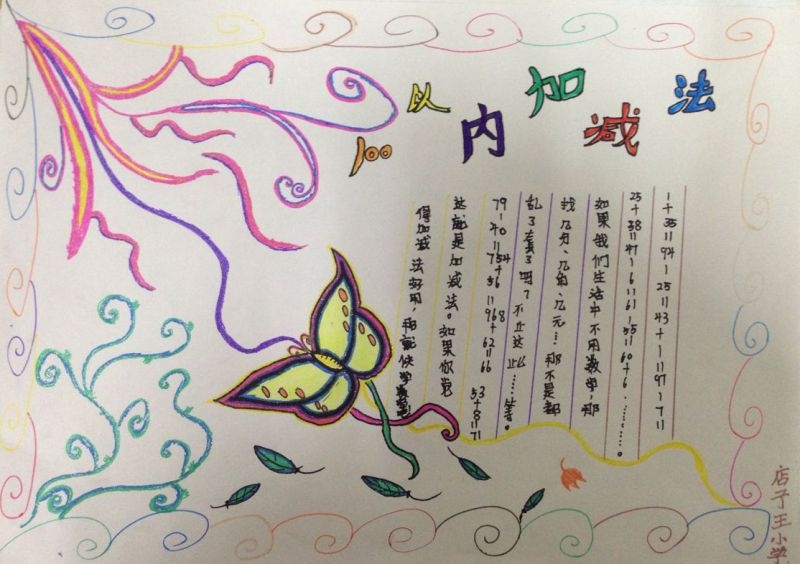 100以内加减法
1+35=94-25=43+1=97-7=
25+38=47-6=61-55=60+6………。
如果我们生活中不用数学,那
找几分、几角、几元…那不是都
乱了套了吗?不止这些……等。
79-40=754+56=968+62=66 53+8=71
这就是加减法。如果你觉
得加减法好用,那就快学数学吧
店子王小学